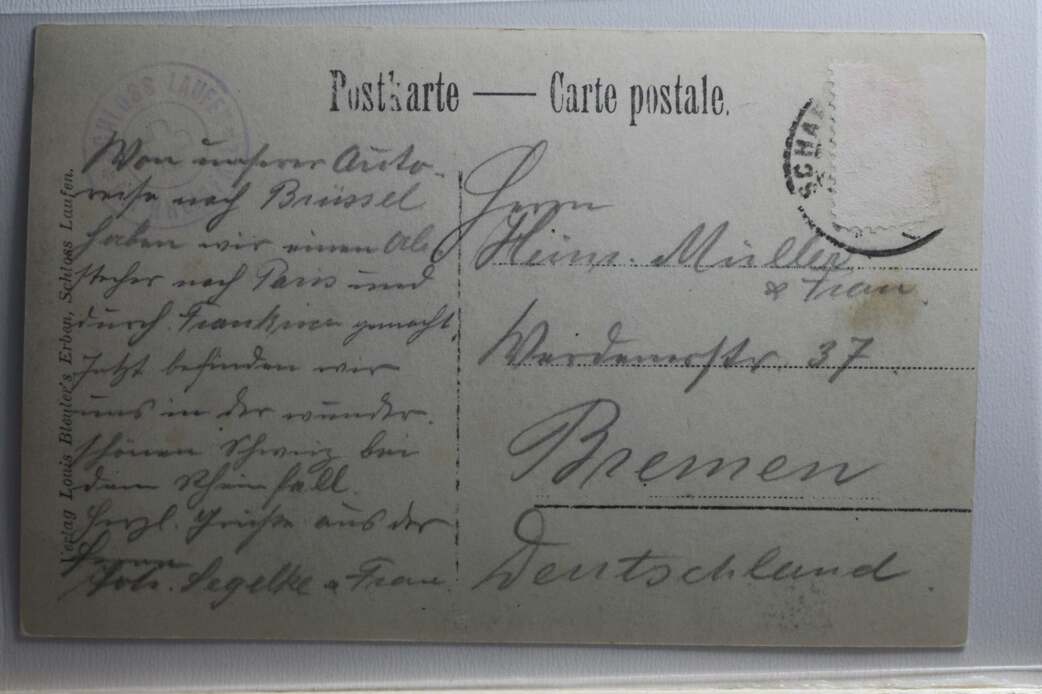 Postkarte — Carte postale.
SCHLOSS LAUFEN
SCHAF
Von unserer Auto-
reise nach Brüssel
haben wir einen Ab
stecher nach Paris und
durch Frankreich gemacht.
Jetzt befinden wir
uns in der wunder-
schönen Schweiz bei
dem Rheinfall.
Herzl. Grüße aus der
Ferne
Joh. Segelke u Frau
Herrn
Heinr. Müller
& Frau.
Werderstr. 37
Bremen
Deutschland
Verlag Louis Bleyler's Erben, Schloss Laufen.